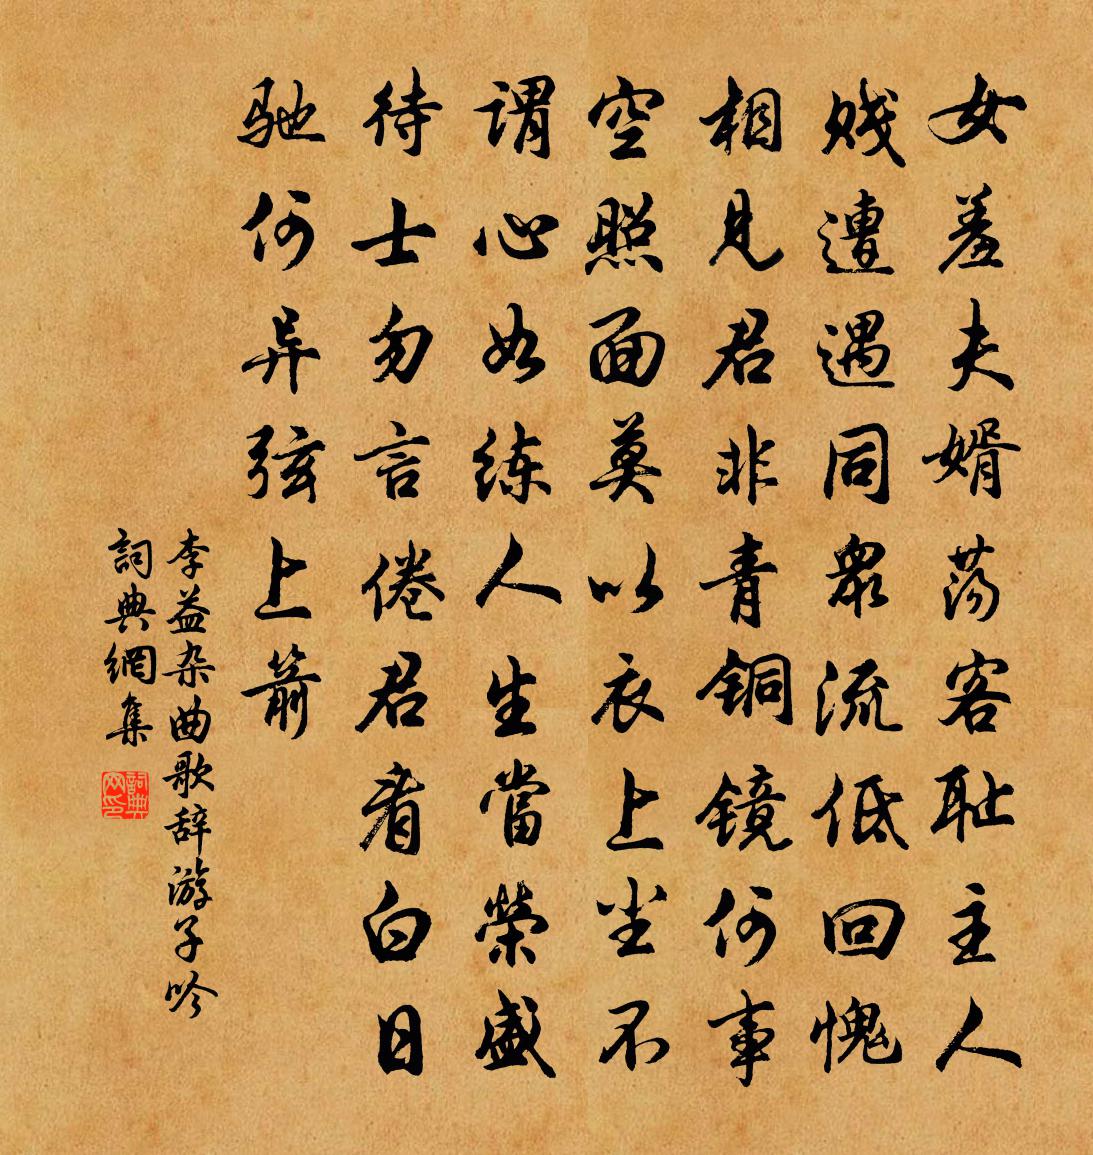 女羞夫婿荡客耻主人
贱遭遇同衆流低回愧
相见君非青铜镜何事
空照面莫以衣上尘不
谓心如练人生當榮盛
待士勿言倦君看白日
驰何异弦上箭
李益杂曲歌辞游子吟
詞典網集
詞典网印